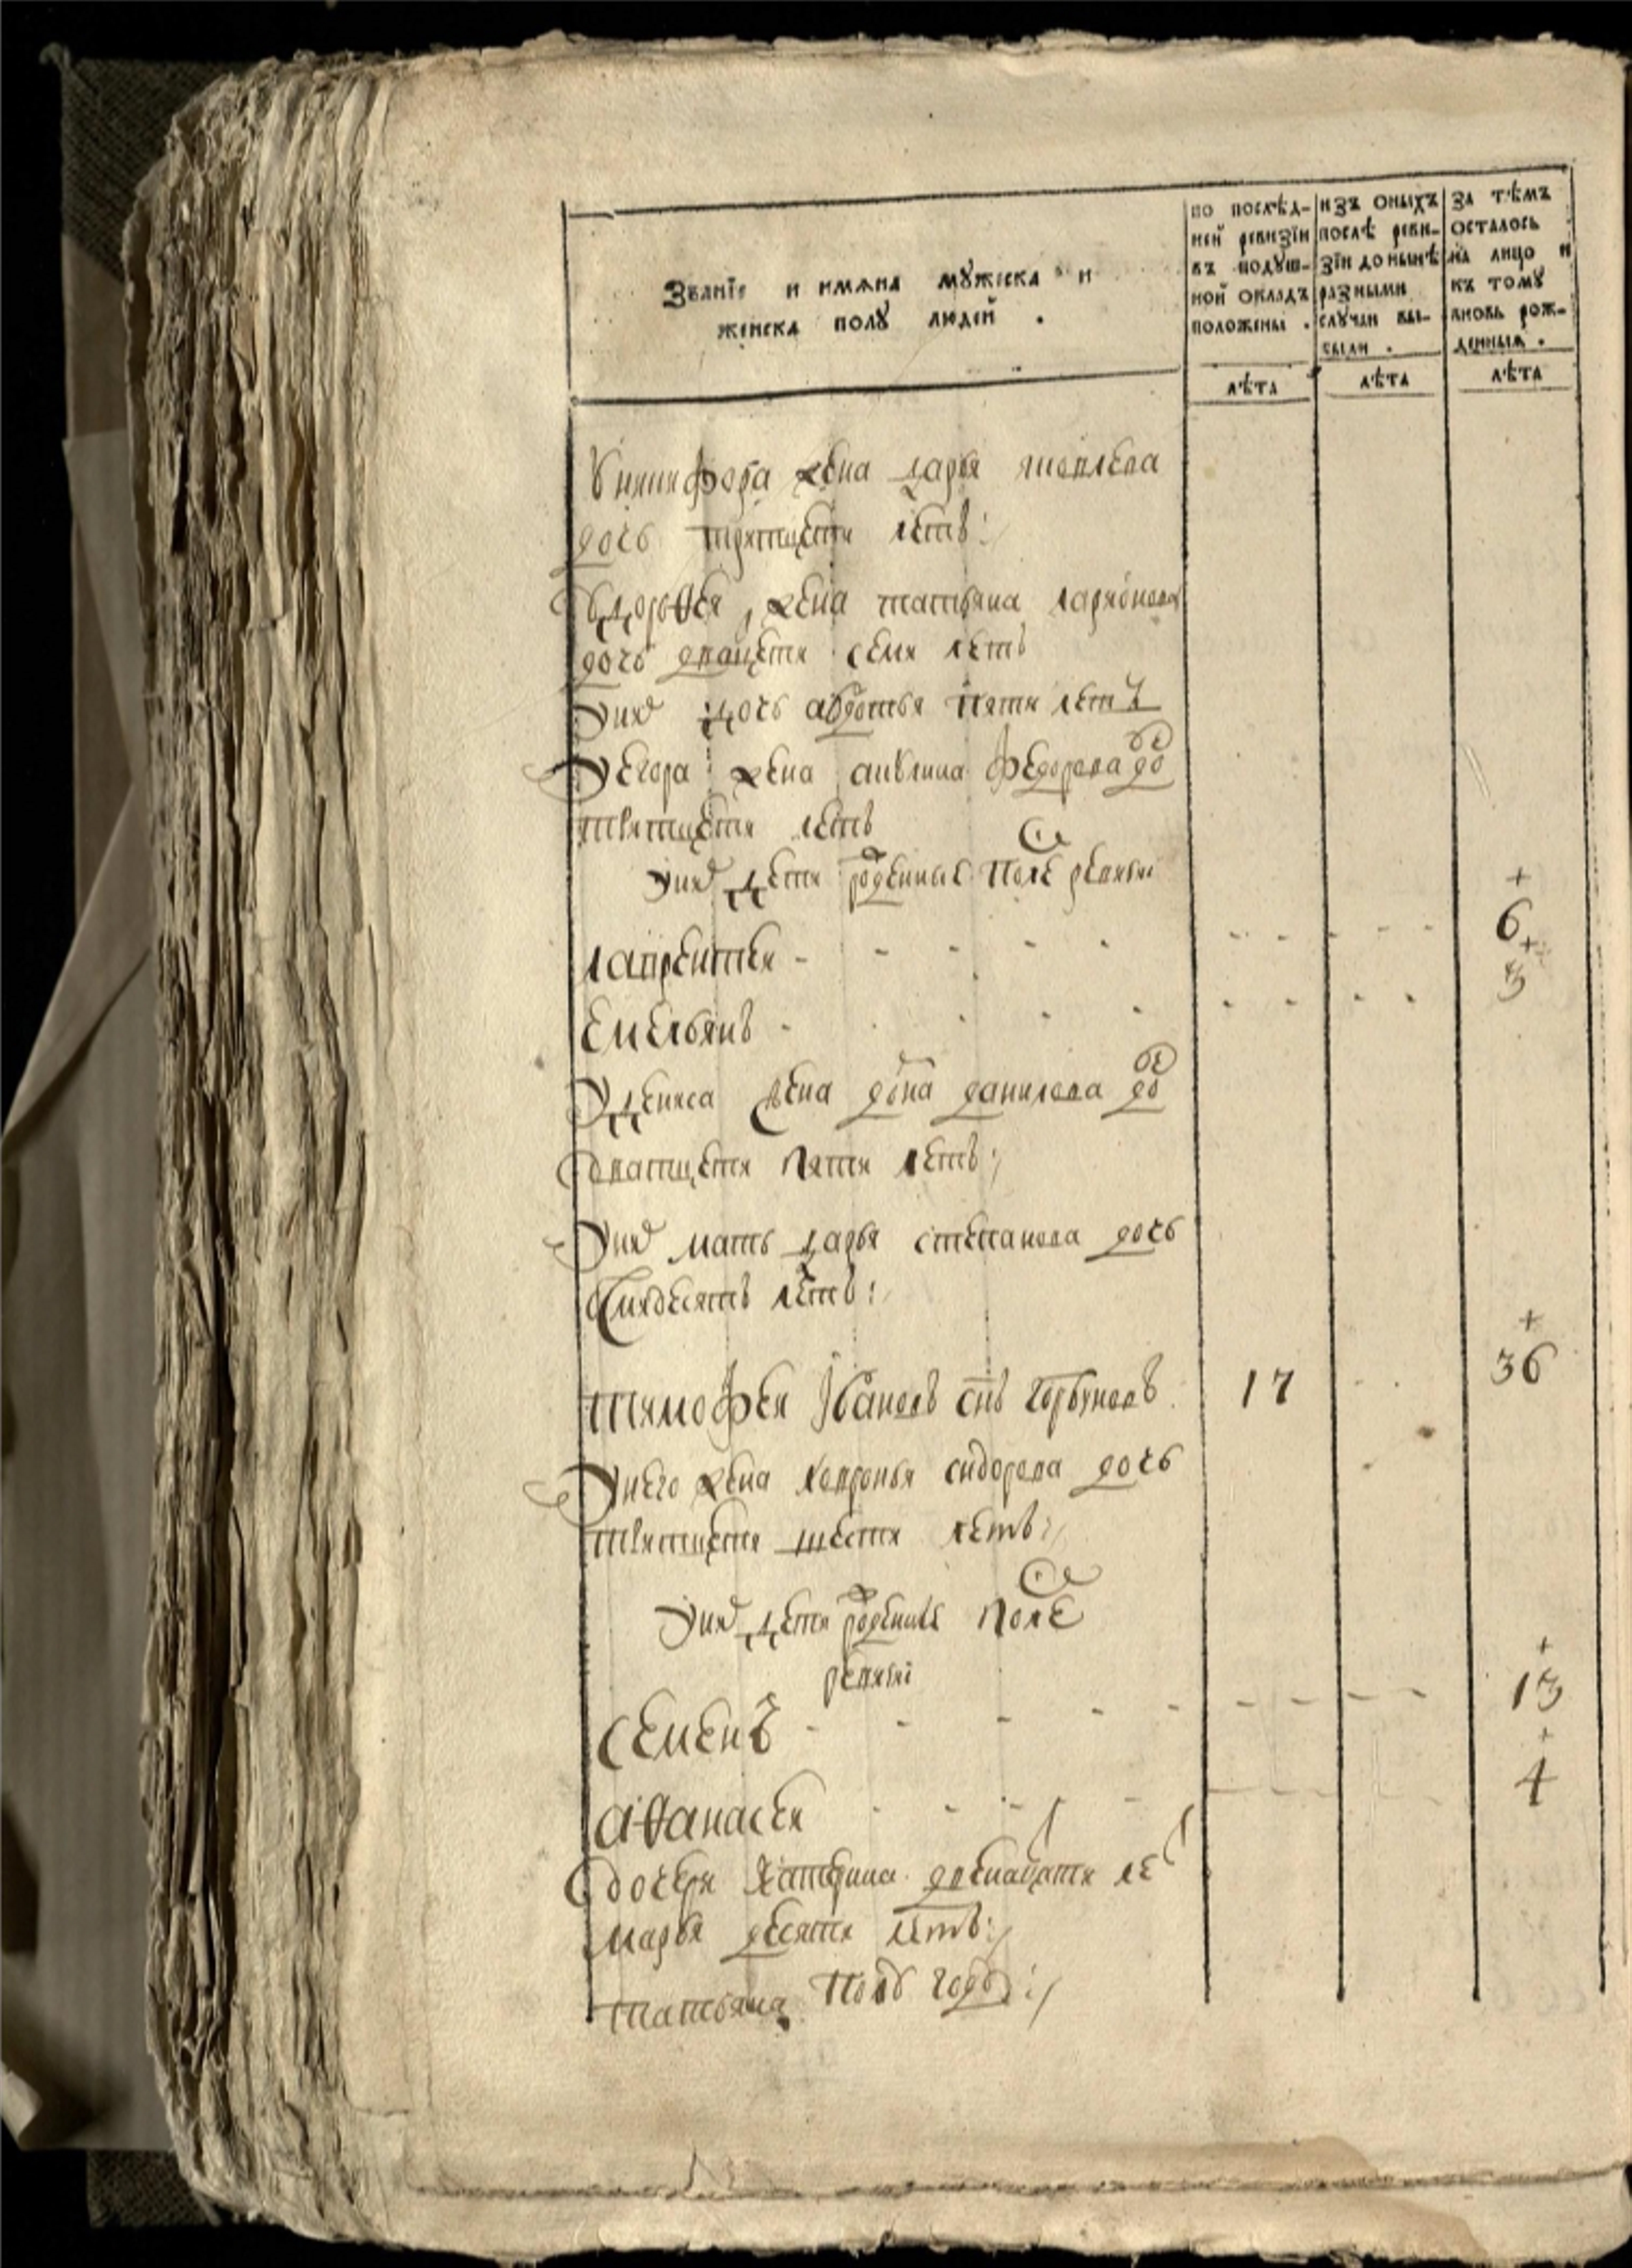 Званїе и имяна мꙋжеска и
женска полꙋ людей .
по послѣд-
ней ревизїи
въ подꙋш-
ной окладъ
положены .
лѣта
изъ оныхъ
послѣ реви-
зїи до нынѣ
разными
слꙋчаи вы-
были .
лѣта
за тѣмъ
осталось
на лицо и
къ томꙋ
вновь рож-
денныя .
лѣта
У никифора жена дарья яковлева
дочь тритцети летъ
жена татьяна ларионова
дочь дватцети семи летъ
У них дочь авдотья пяти летъ
У егора жена акулина федорова до
тритцети летъ
У них дети роденные после ревизи
лаврентеи - - - - - - - 6
емельянъ - - - - - - - 3
У дениса жена данилова до
дватцети пяти летъ
У них мать дарья степанова дочь
летъ
тимофеи Iвановъ снъ горбуновъ 17 - - 36
У него жена хавронья сидорова дочь
тритцети шести летъ
У них дети роденные после
ревизиi
семенъ - - - - - - - 13
аѳанасеи - - - - - - - 4
дочери катерина двенатцати ле
марья десяти летъ
татьяна полъ года